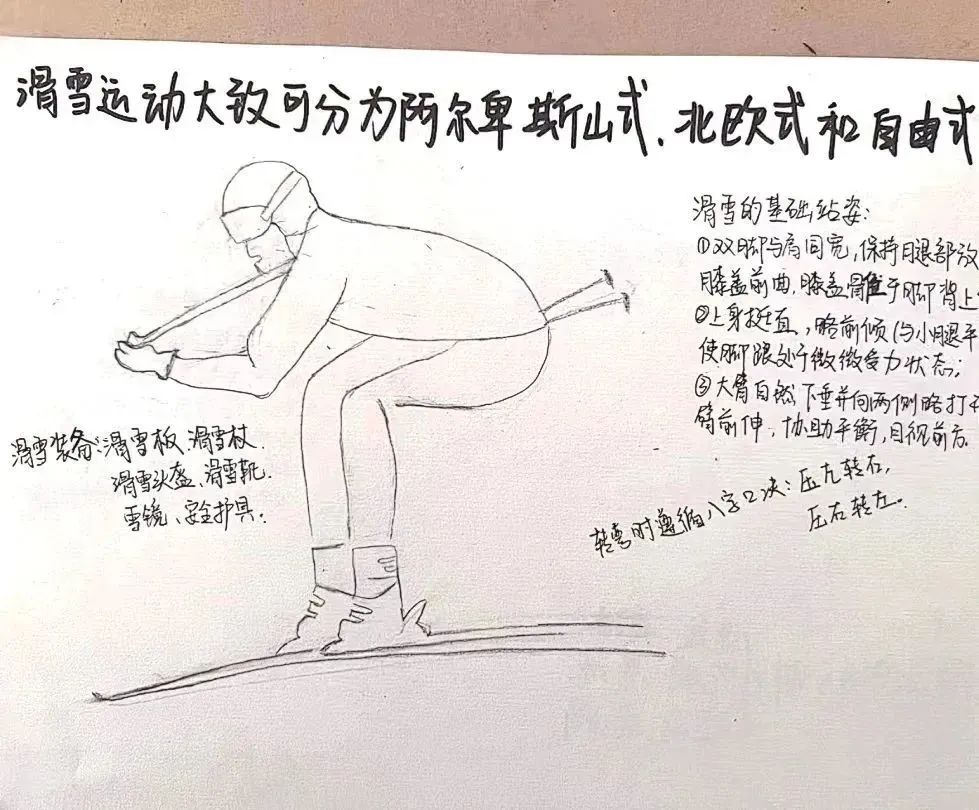 滑雪运动大致可分为阿尔卑斯山式、北欧式和自由式
滑雪的基础站姿:
①双脚与肩同宽,保持腿部放
膝盖前曲,膝盖骨置于脚背上
②上身挺直,略前倾(与小腿平
使脚跟处于微微受力状态;
③大臂自然下垂并向两侧略打开
臂前伸,协助平衡,目视前方
滑雪装备:滑雪板、滑雪杖、
滑雪头盔、滑雪靴、
雪镜、安全护具.
转弯时遵循八字口决:压左转右,
压右转左.